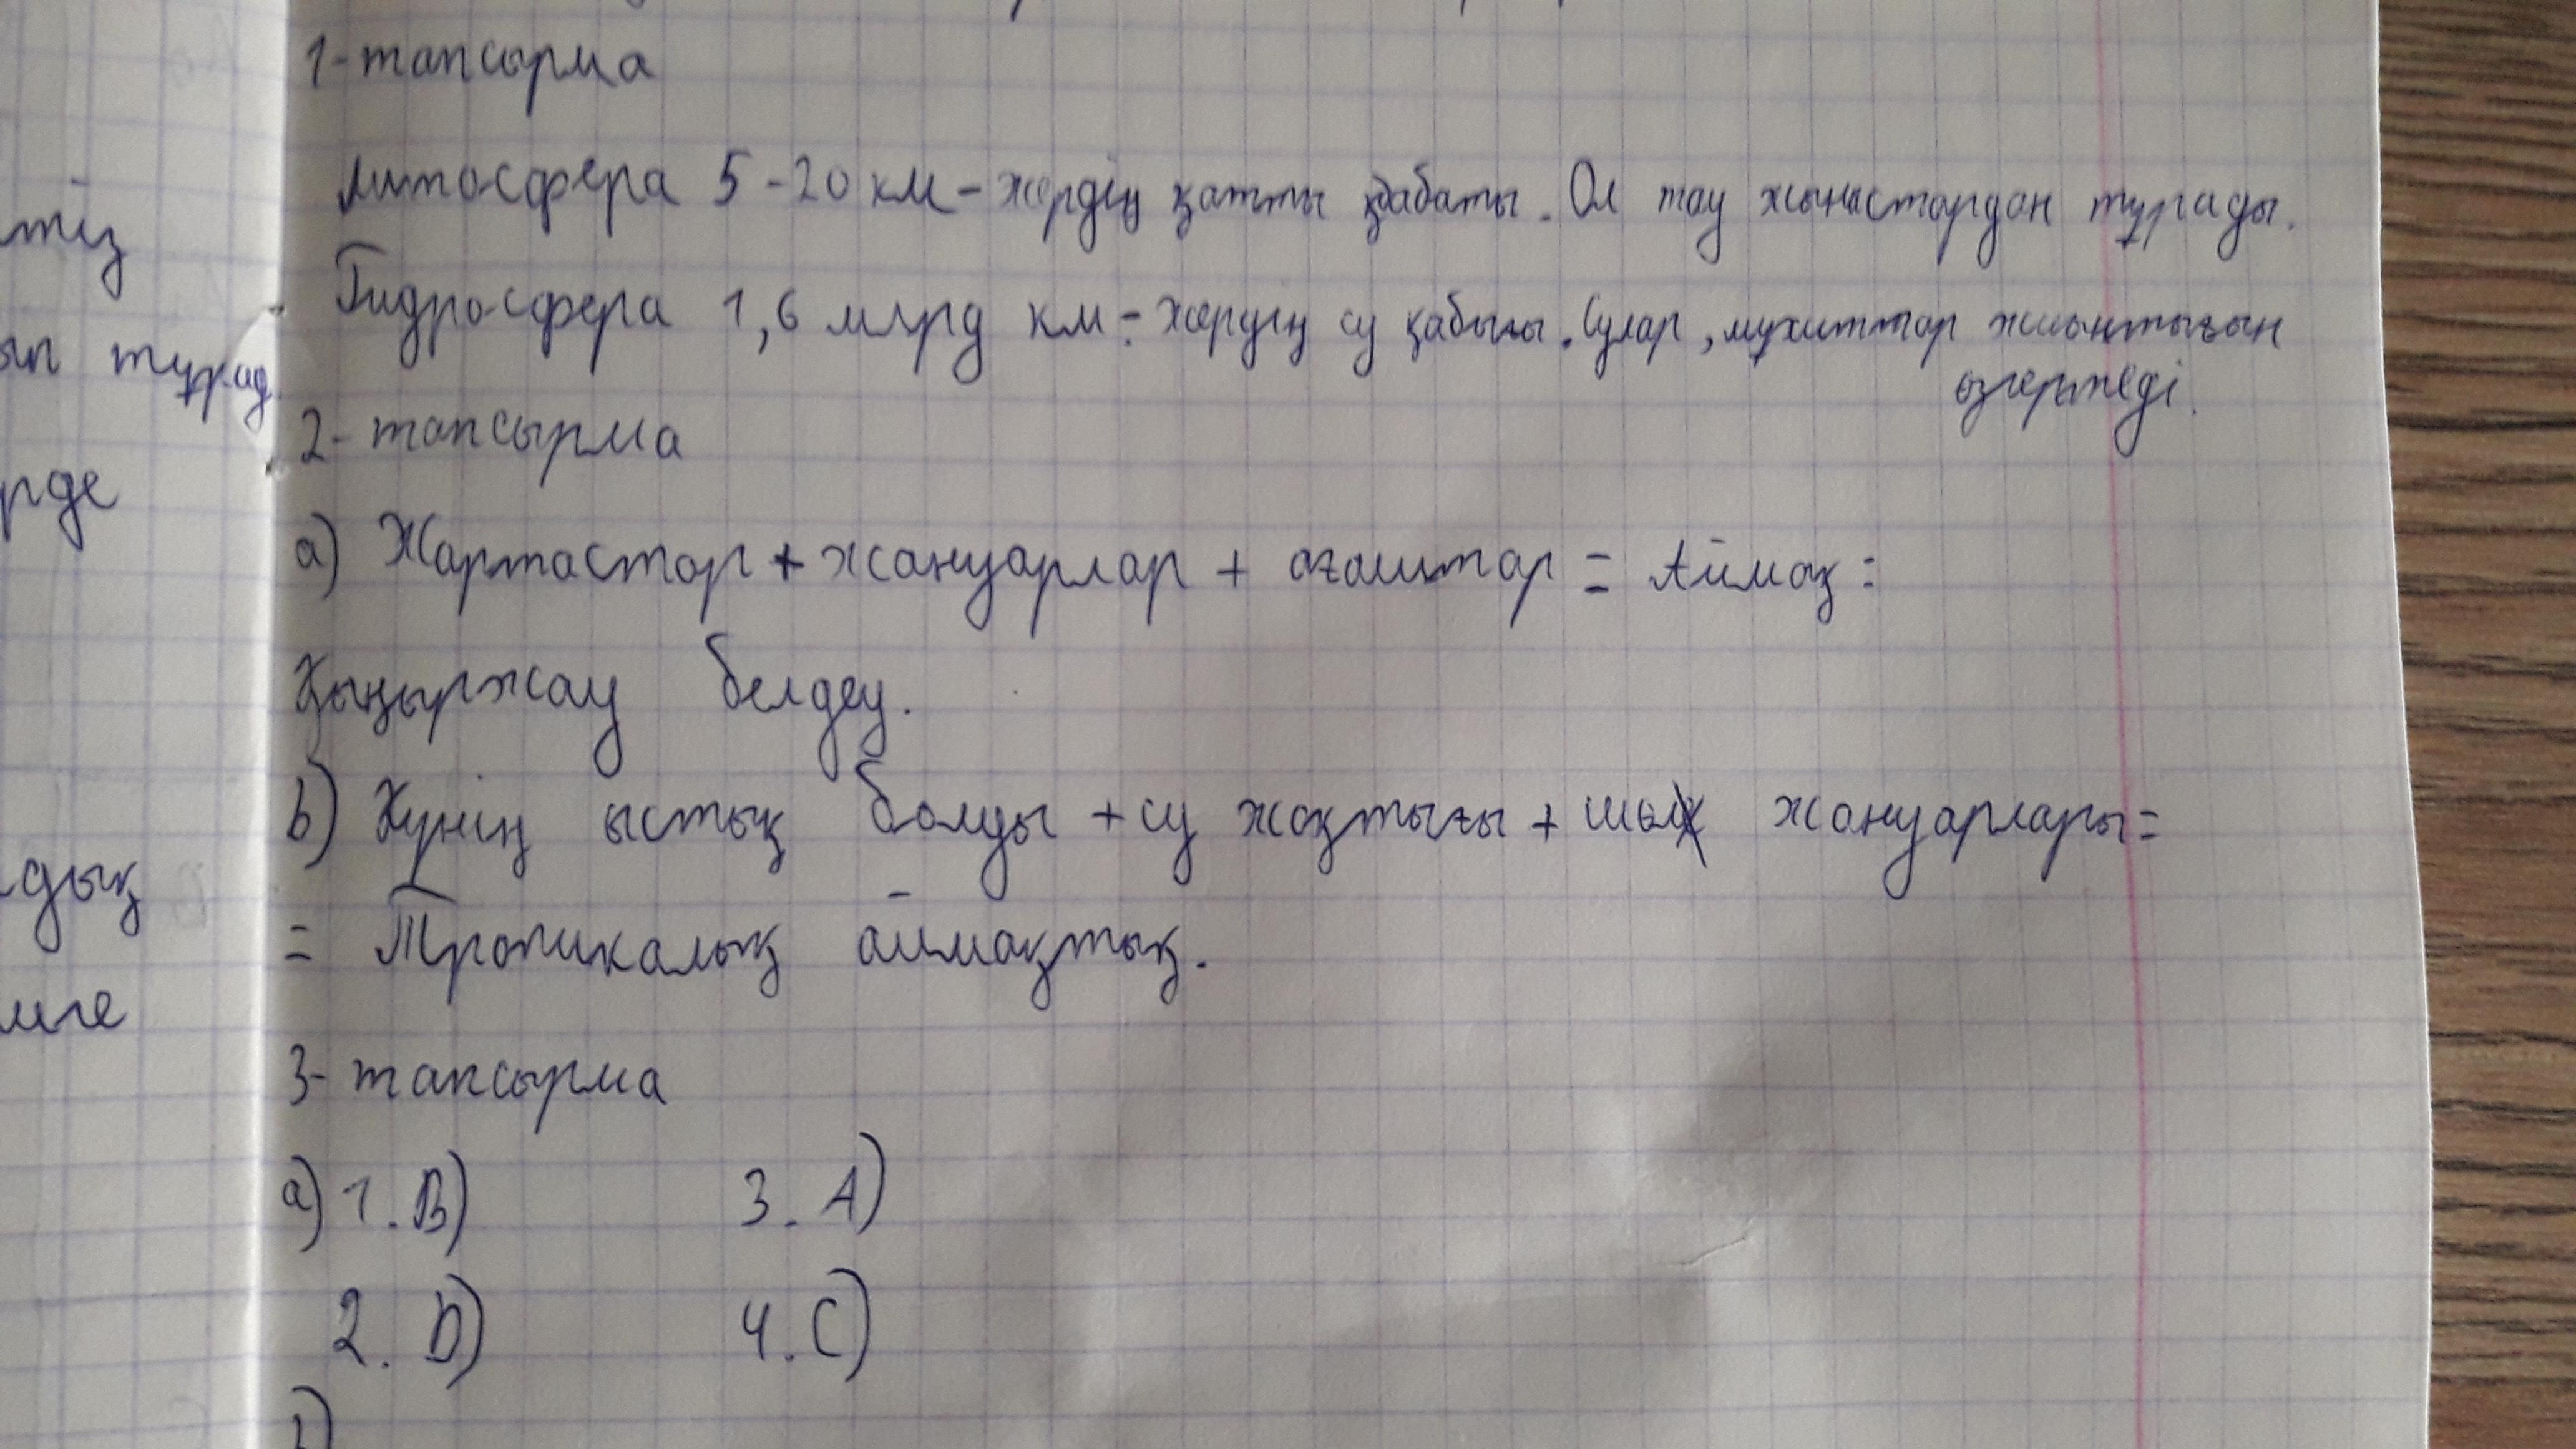 тіз
ып тұрад
рде
дық
мге
1-тапсырма
Литосфера 5-20 км - жердің қатты қабаты. Ол тау жыныстардан тұрады.
Гидросфера 1,6 млрд км - жердің су қабығы. Сулар, мұхиттар жиынтығын
өзгертеді.
2-тапсырма
а) Жартастар + жануарлар + ағаштар = Аймақ:
Қыңыржау белдеу.
b) Күнің ыстық болды + су жоқтығы + шөл жануарлары=
= Тропикалық аймақтық.
3-тапсырма
а) 1. В) 3. А)
2. D) 4. С)
b)